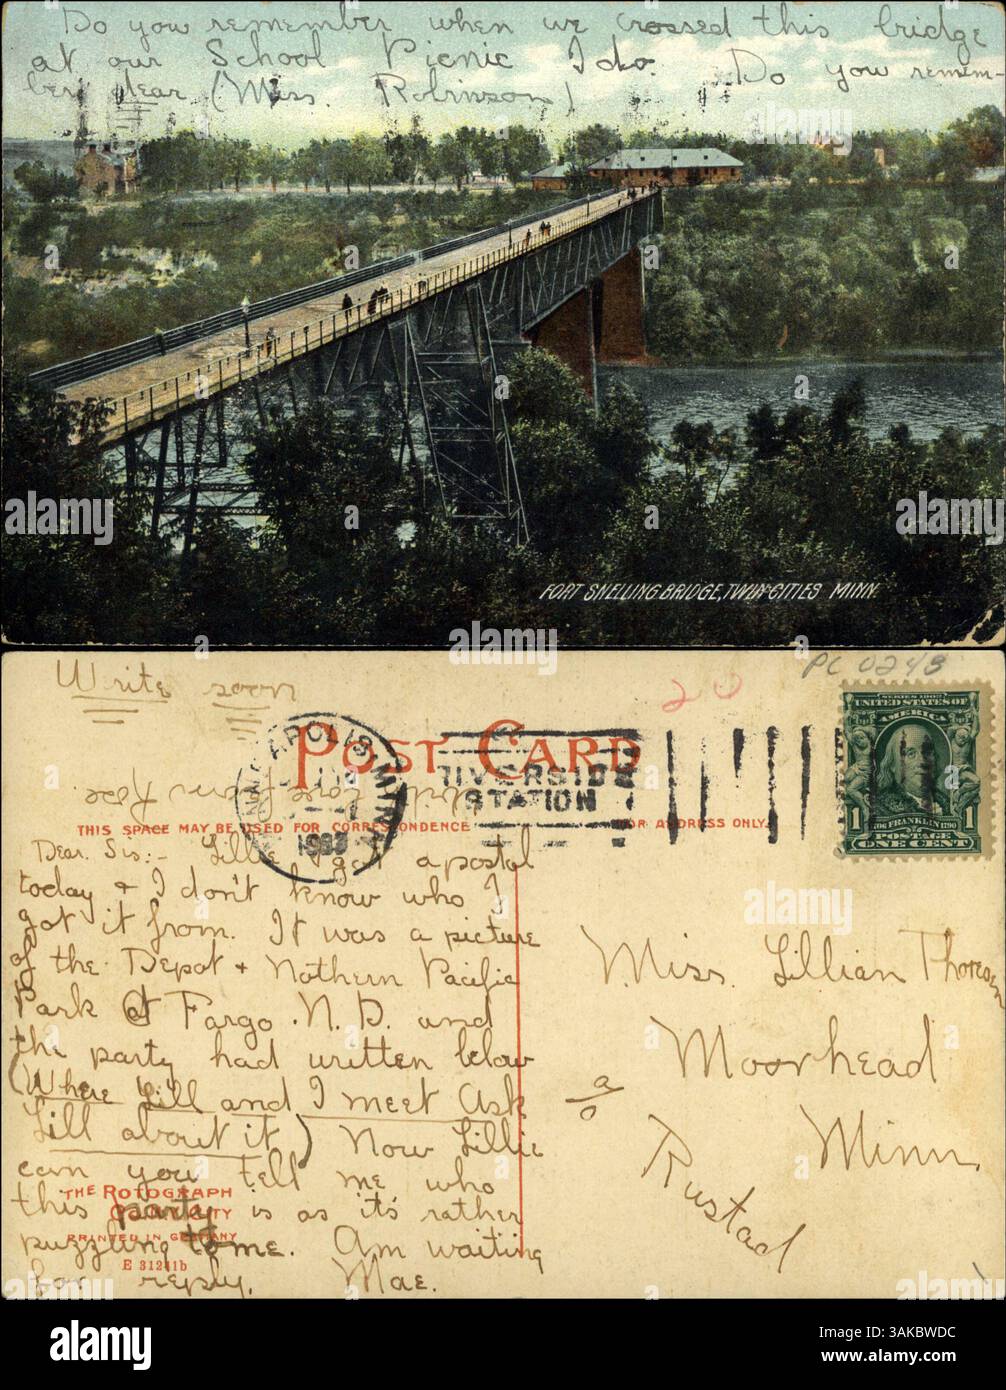 Do you remember when we crossed this bridge
at our School Picnic I do. Do you remem-
ber dear (Miss. Robinson)
FORT SNELLING BRIDGE, TWIN CITIES MINN
Write soon
PC 0243
20
POST CARD
MINNEAPOLIS, MINN.
RIVERSIDE
STATION
SERIES 1902
UNITED STATES OF
AMERICA
1706 FRANKLIN 1790
1 POSTAGE 1
ONE CENT
With love from Rose.
THIS SPACE MAY BE USED FOR CORRESPONDENCE
FOR ADDRESS ONLY.
Dear. Sis:- Lillie I got a postal
today & I don't know who I
got it from. It was a picture
of the Depot & Nothern Pacific
Park @ Fargo. N. D. and
the party had written below
(Where Lill and I meet Ask
Lill about it) Now Lillie
can you tell me who
this party is as it's rather
puzzling to me. Am waiting
for reply. Mae.
THE ROTOGRAPH
CO., N.Y. CITY
PRINTED IN GERMANY
E 31241b
Miss. Lillian Thoreson
Moorhead
Minn.
c/o
Rustad
alamy
Image ID: 3AKBWDC
www.alamy.com